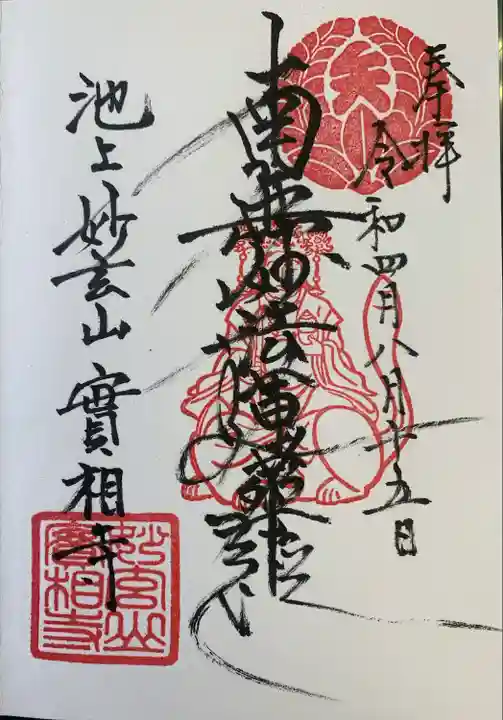 奉拝
令和四年八月十五日
南無妙法蓮華経
池上妙玄山實相寺
妙玄山
實相寺